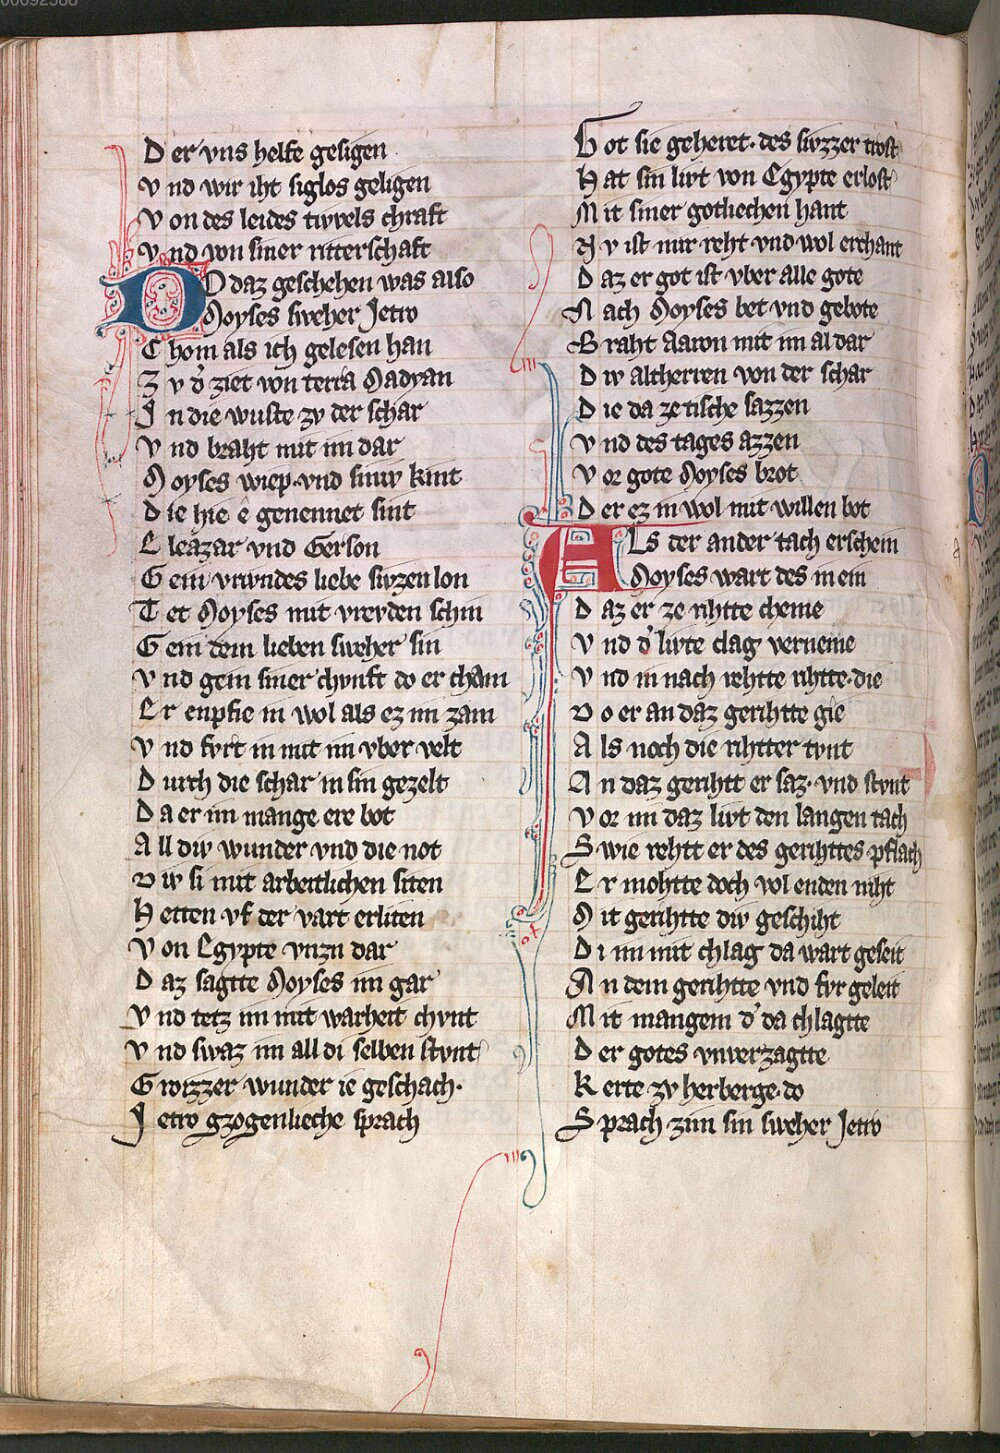 00092588
Der vns helfe gesigen
Vnd wir iht siglos geligen
Von des leides tivvels chraft
Vnd von siner ritterschaft
DO daz geschehen was also
Moyses sweher Jetro
Chom als ich gelesen han
Zv d' ziet von terra Madyan
In die wuste zv der schar
Vnd braht mit im dar
Moyses wiep vnd siniv kint
Die hie ê genennet sint
Eleazar vnd Gerson
Gein vrivndes liebe sivzen lon
Tet Moyses mit vreyden schin
Gein dem lieben sweher sin
Vnd gein siner chvnft do er cham
Er enpfie in wol als ez im zam
Vnd fvrt in mit im vber velt
Durch die schar in sin gezelt
Da er im mange ere bot
All div wunder vnd die not
Div si mit arbeitlichen siten
Hetten vf der vart erliten
Von Egypte vnzn dar
Daz sagtte Moyses im gar
Vnd tetz im mit warheit chvnt
Vnd swaz im all di selben stvnt
Grozzer wunder ie geschach.
Jetro gzogenlieche sprach
Got sie geheret. des sivzzer trost
Hat sin livt von Egypte erlost
Mit siner gotliechen hant
Nv ist mir reht vnd wol erchant
Daz er got ist vber alle gote
Nach Moyses bet vnd gebote
Braht Aaron mit im al dar
Div altherren von der schar
Die da ze tische sazzen
Vnd des tages azzen
Vor gote Moyses brot
Der ez in wol mit willen bot
ALs der ander tach erschein
Moyses wart des in ein
Daz er ze rihtte cheme
Vnd d' livte clag verneme
Vnd in nach rehtte rihtte. die
Do er an daz gerihtte gie
Als noch die rihtter tvnt
An daz gerihtt er saz. vnd stvnt
Vor im daz livt den langen tach
Swie rehtt er des gerihttes pflach
Er mohtte doch vol enden niht
Mit gerihtte div geschiht
Di im mit chlag da wart geseit
An dem gerihtte vnd fvr geleit
Mit mangem d' da chlagtte
Der gotes vnverzagtte
Kerte zv herberge. do
Sprach zim sin sweher Jetro